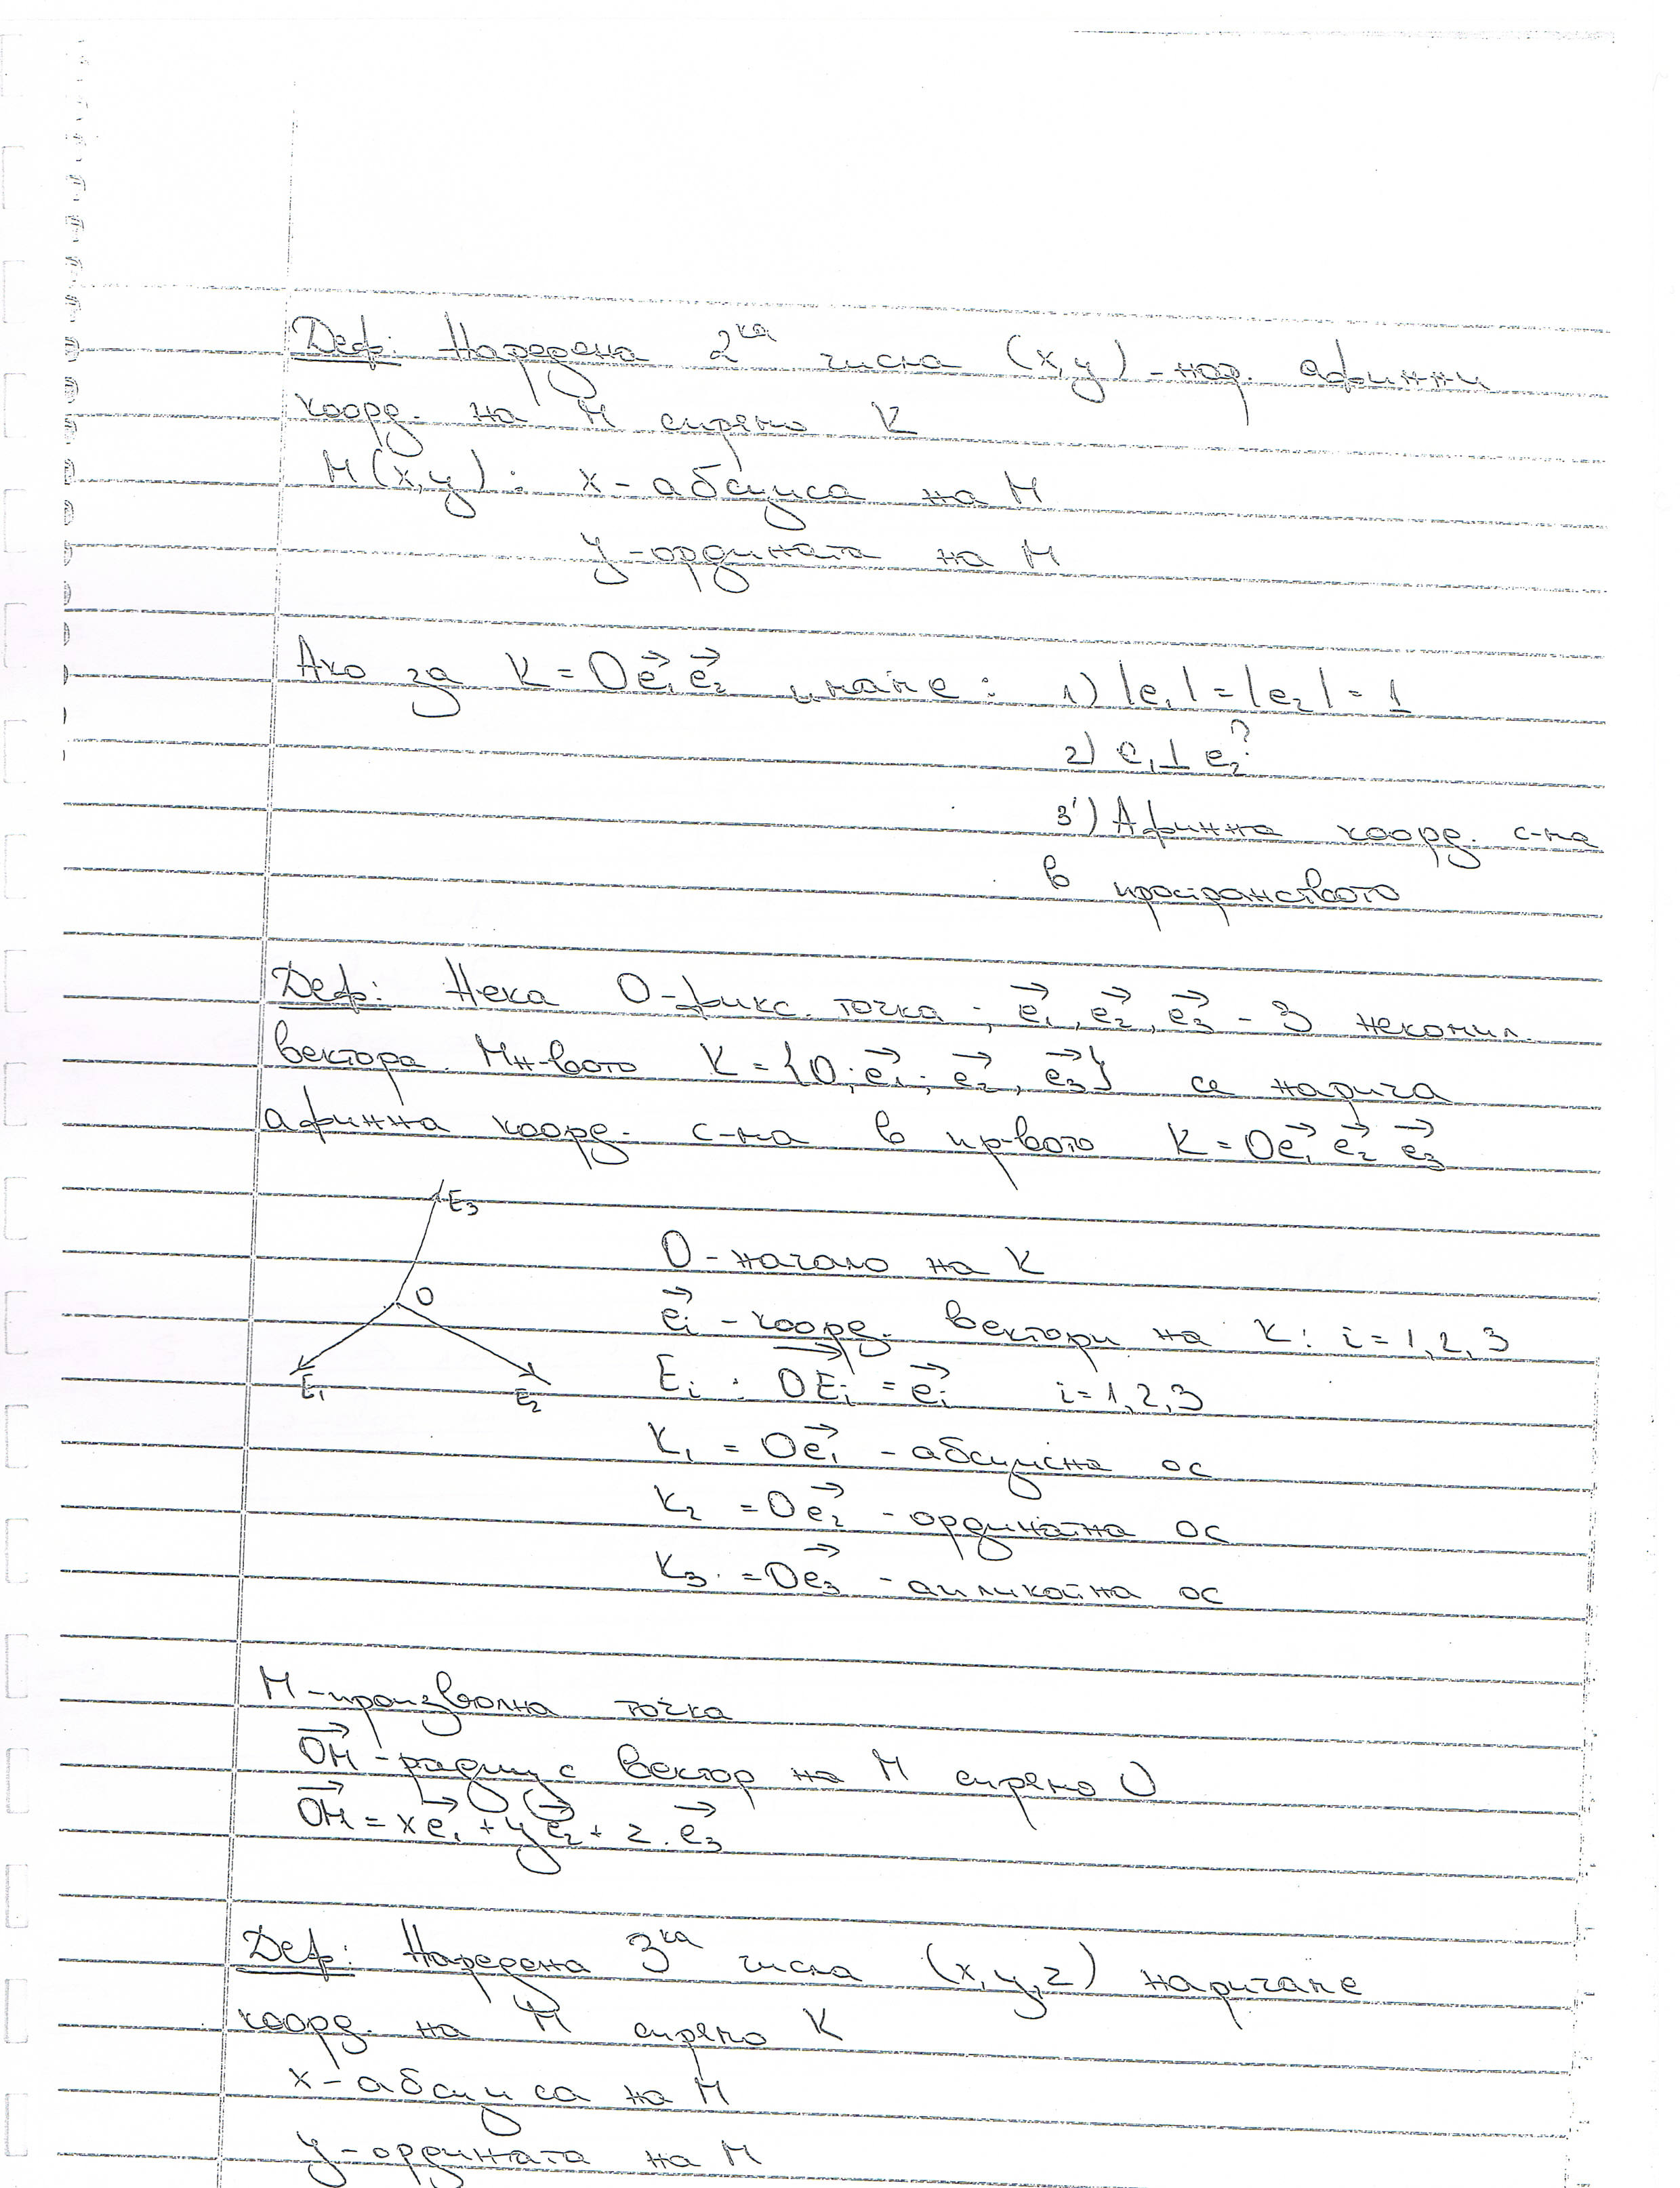 Деф: Наредена 2ка числа (x,y) - нар. афинни
коорд. на M спрямо K
M(x,y): x - абсциса на M
y - ордината на M
Ако за K = Oe₁→e₂→ имаме: 1) |e₁| = |e₂| = 1
2) e₁⊥e₂?
3') Афинна коорд. с-ма
в пространството
Деф: Нека O - фикс. точка; e₁→, e₂→, e₃→ - 3 некомпл.
вектора. Мн-вото K = {O; e₁→; e₂→, e₃→} се нарича
афинна коорд. с-ма в пр-вото K = Oe₁→ e₂→ e₃→
E₃
O
E₁ E₂
O - начало на K
eᵢ→ - коорд. вектори на K: i = 1,2,3
Eᵢ : OEᵢ→ = eᵢ→ i = 1,2,3
K₁ = Oe₁→ - абсцисна ос
K₂ = Oe₂→ - ординатна ос
K₃ = Oe₃→ - апликатна ос
M - произволна точка
OM→ - радиус вектор на M спрямо O
OM→ = xe₁→ + ye₂→ + z.e₃→
Деф: Наредена 3ка числа (x,y,z) наричаме
коорд. на M спрямо K
x - абсциса на M
y - ордината на M